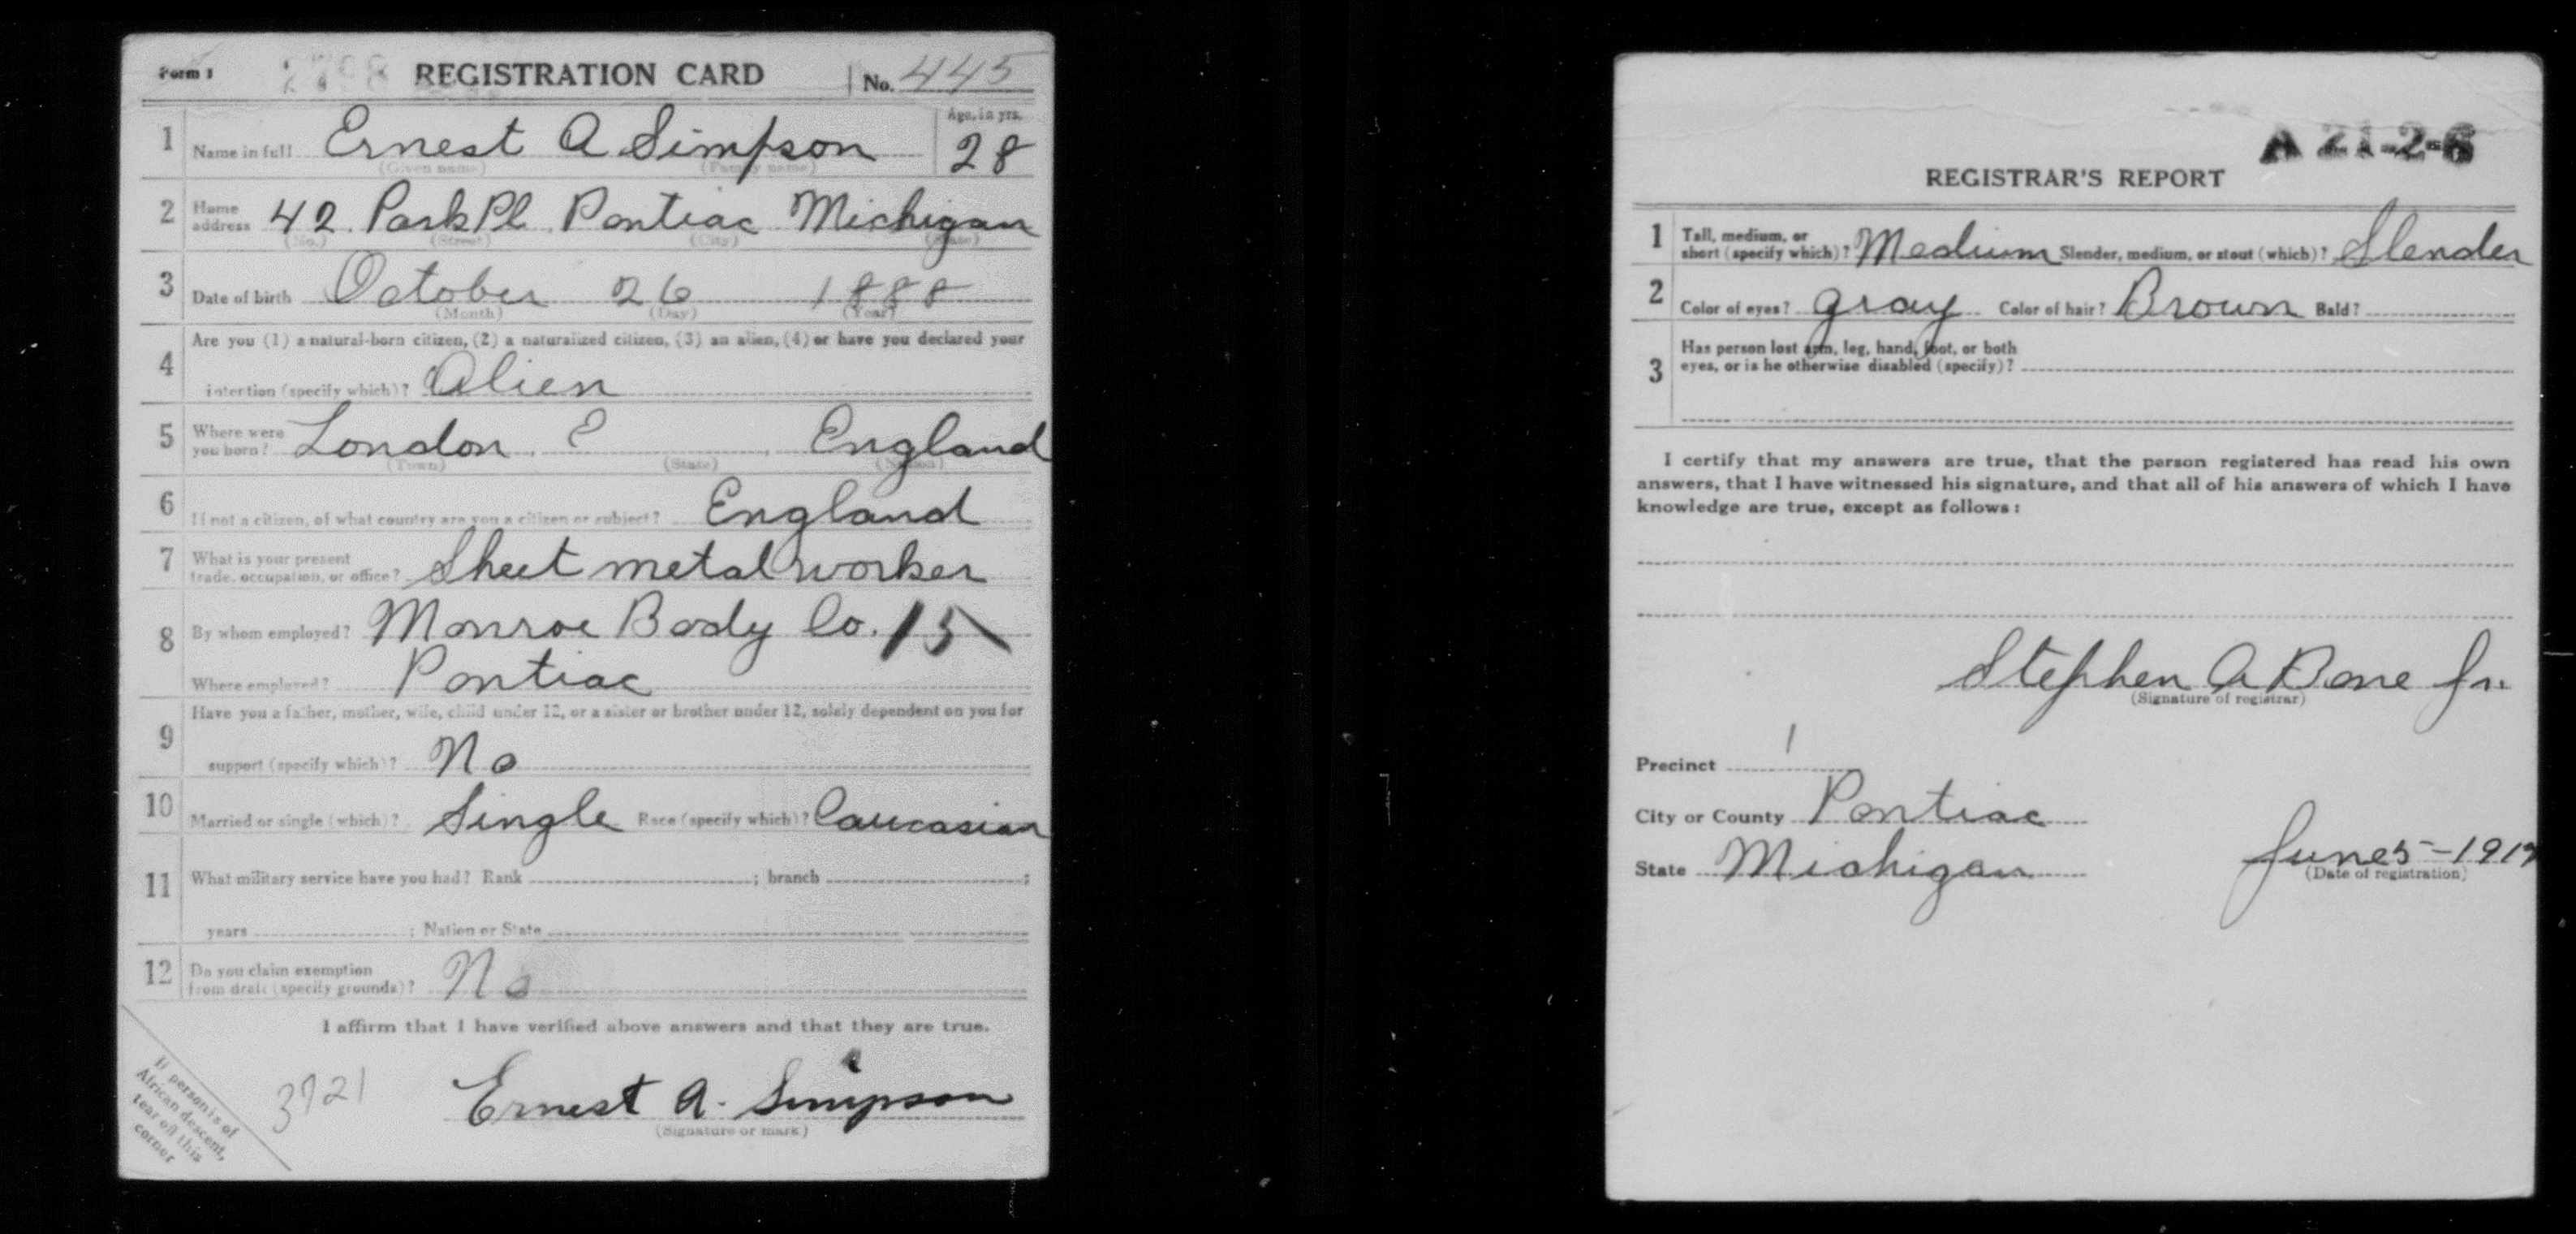 Form 1 2798 REGISTRATION CARD No. 445
1 Name in full Ernest A Simpson Age, in yrs. 28
(Given name) (Family name)
2 Home address 42 Park Pl Pontiac Michigan
(No.) (Street) (City) (State)
3 Date of birth October 26 1888
(Month) (Day) (Year)
4 Are you (1) a natural-born citizen, (2) a naturalized citizen, (3) an alien, (4) or have you declared your
intention (specify which)? Alien
5 Where were you born? London, E, England
(Town) (State) (Nation)
6 If not a citizen, of what country are you a citizen or subject? England
7 What is your present trade, occupation, or office? Sheet metal worker
8 By whom employed? Monroe Body Co. 15
Where employed? Pontiac
9 Have you a father, mother, wife, child under 12, or a sister or brother under 12, solely dependent on you for
support (specify which)? No
10 Married or single (which)? Single Race (specify which)? Caucasian
11 What military service have you had? Rank ; branch ;
years ; Nation or State
12 Do you claim exemption from draft (specify grounds)? No
I affirm that I have verified above answers and that they are true.
3721 Ernest A. Simpson
(Signature or mark)
If person is of
African descent,
tear off this
corner
A 21-2-6
REGISTRAR'S REPORT
1 Tall, medium, or short (specify which)? Medium Slender, medium, or stout (which)? Slender
2 Color of eyes? gray Color of hair? Brown Bald?
3 Has person lost arm, leg, hand, foot, or both
eyes, or is he otherwise disabled (specify)?
I certify that my answers are true, that the person registered has read his own
answers, that I have witnessed his signature, and that all of his answers of which I have
knowledge are true, except as follows:
Stephen A Bone Jr.
(Signature of registrar)
Precinct 1
City or County Pontiac
State Michigan June 5-1917
(Date of registration)